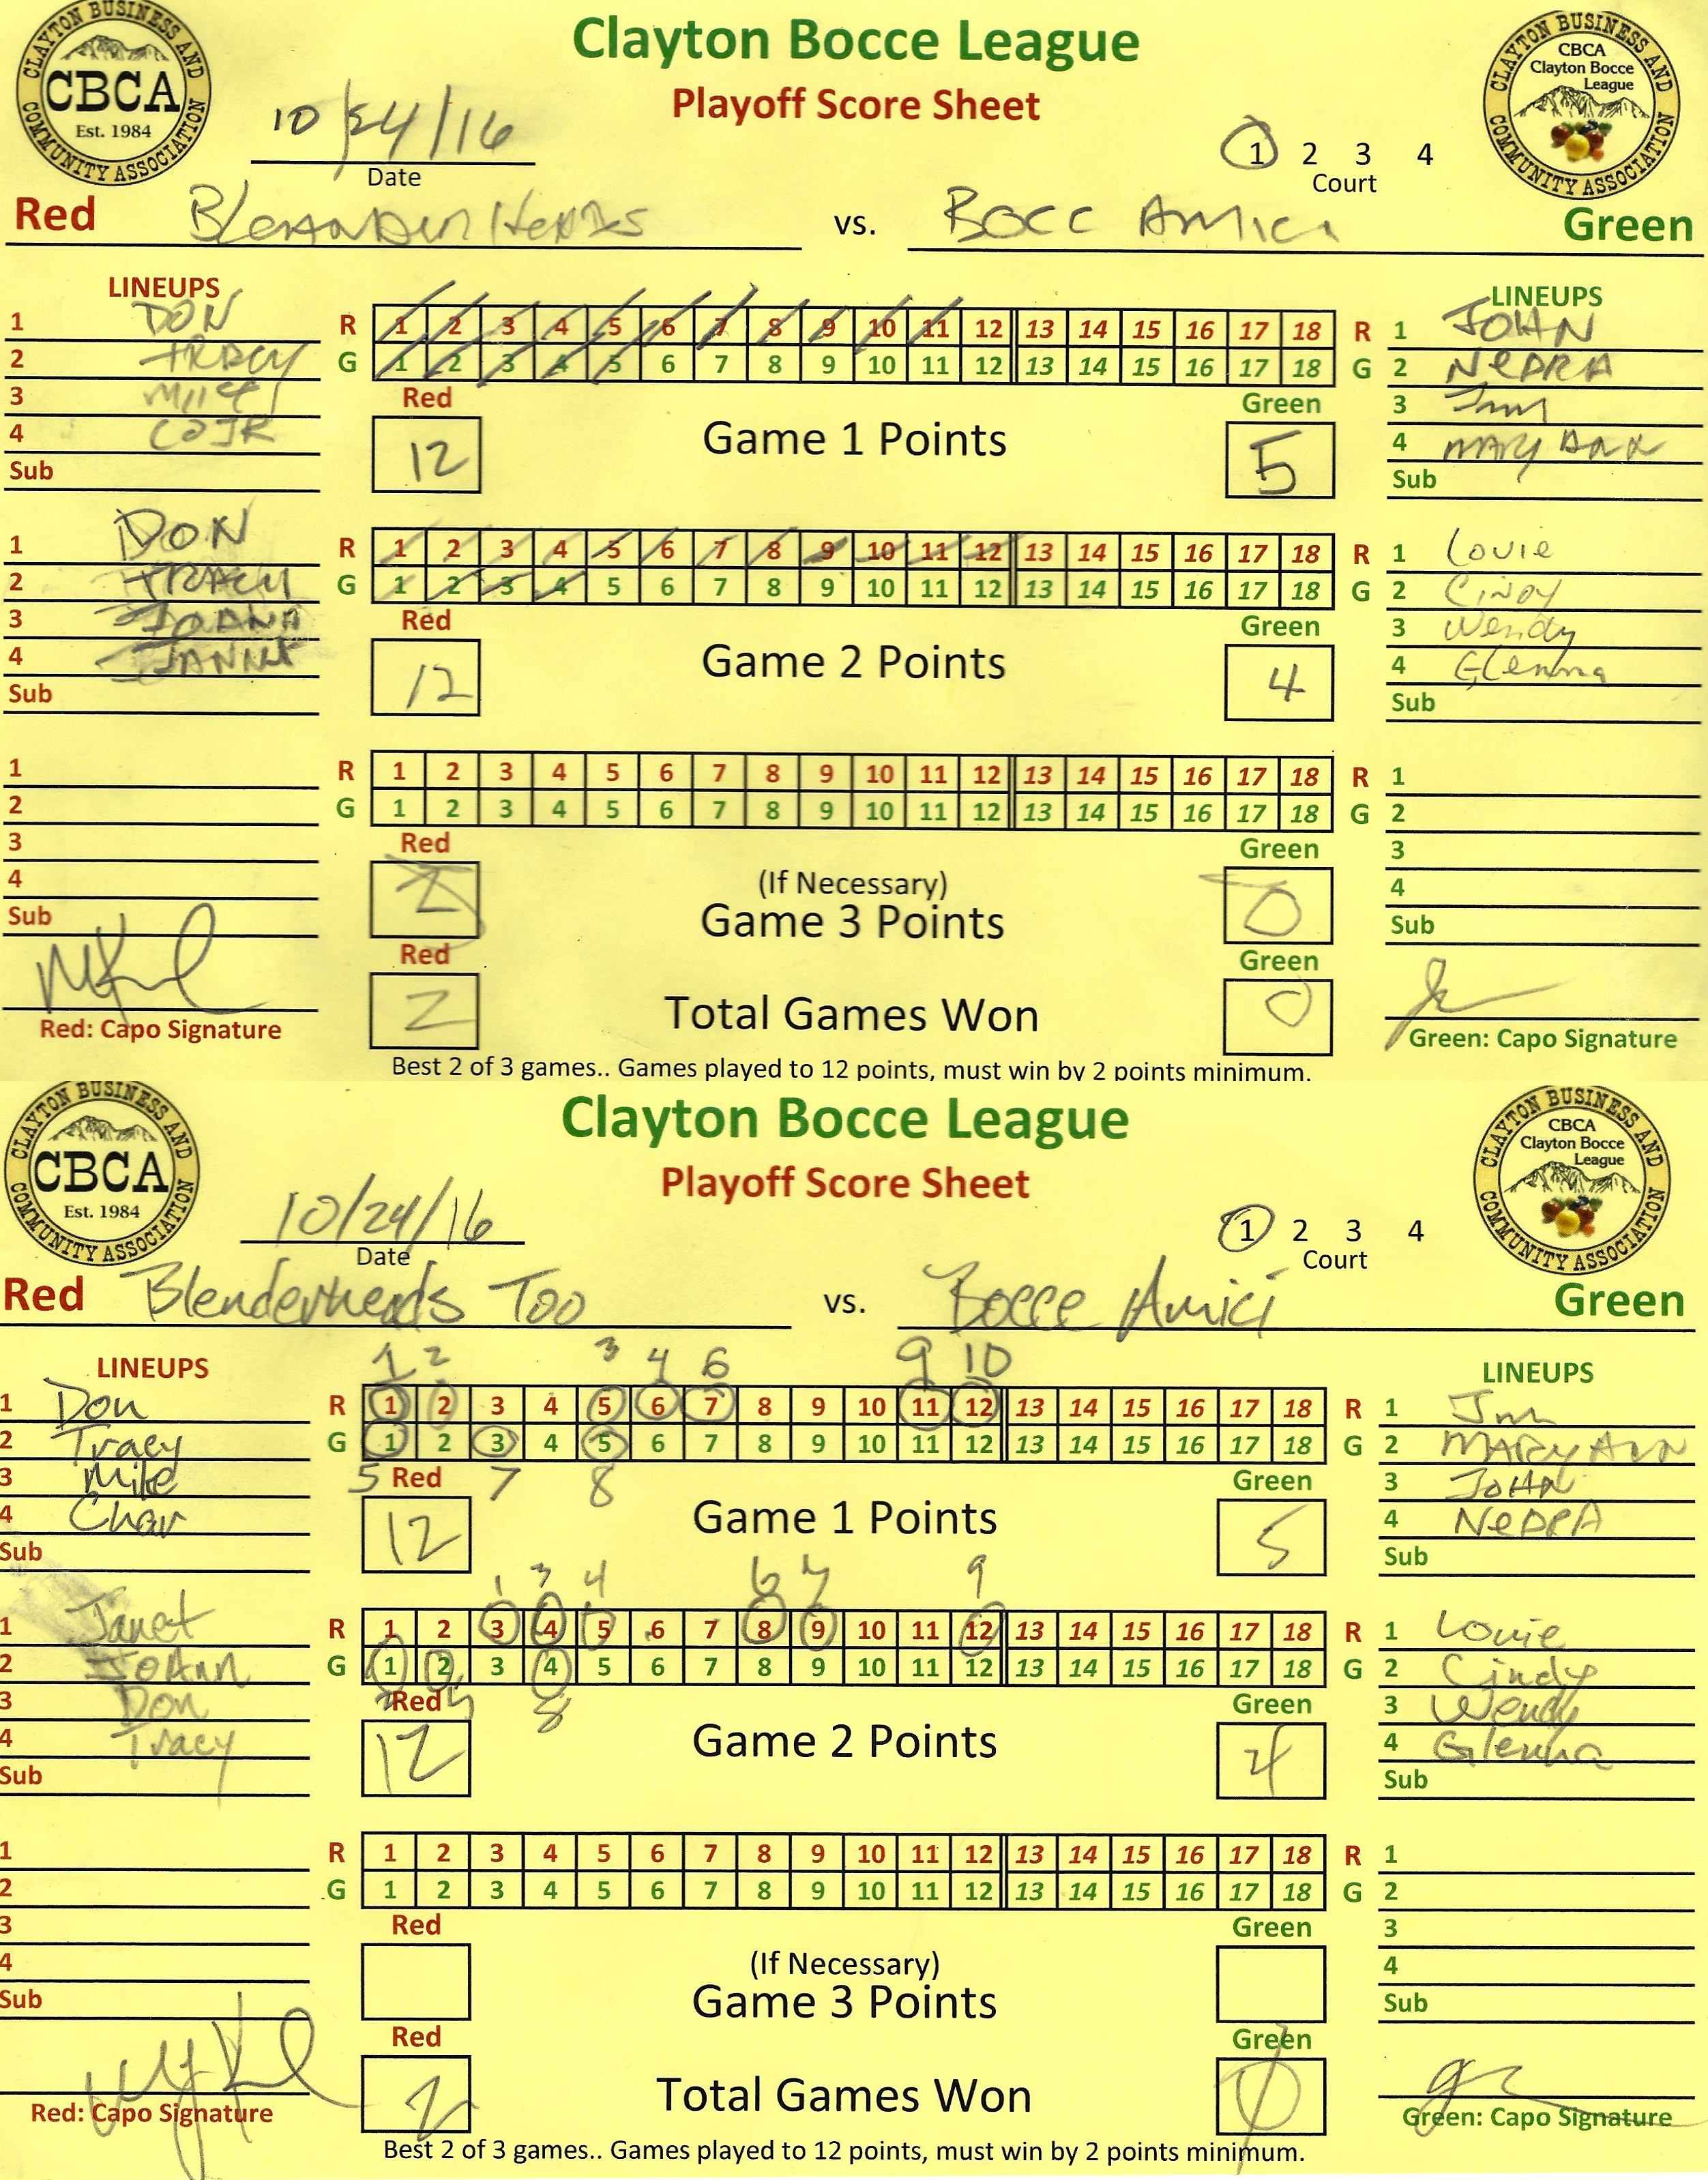 CLAYTON BUSINESS AND COMMUNITY ASSOCIATION
CBCA
Est. 1984
Clayton Bocce League
Playoff Score Sheet
CLAYTON BUSINESS AND COMMUNITY ASSOCIATION
CBCA
Clayton Bocce
League
10/24/16
Date
1 2 3 4
Court
Red vs. BOCC AMICI Green
LINEUPS LINEUPS
1 DON R 1 2 3 4 5 6 7 8 9 10 11 12 13 14 15 16 17 18 R 1 JOHN
2 TRACY G 1 2 3 4 5 6 7 8 9 10 11 12 13 14 15 16 17 18 G 2 NEDRA
3 Red Green 3 Jim
4 12 Game 1 Points 5 4 MARY ANN
Sub Sub
1 DON R 1 2 3 4 5 6 7 8 9 10 11 12 13 14 15 16 17 18 R 1 Louie
2 TRACY G 1 2 3 4 5 6 7 8 9 10 11 12 13 14 15 16 17 18 G 2 Cindy
3 JOANN Red Green 3 Wendy
4 12 Game 2 Points 4 4 Glenna
Sub Sub
1 R 1 2 3 4 5 6 7 8 9 10 11 12 13 14 15 16 17 18 R 1
2 G 1 2 3 4 5 6 7 8 9 10 11 12 13 14 15 16 17 18 G 2
3 Red Green 3
4 (If Necessary) 4
Sub Game 3 Points 0 Sub
Red Green
2 Total Games Won 0
Red: Capo Signature Green: Capo Signature
Best 2 of 3 games.. Games played to 12 points, must win by 2 points minimum.
CLAYTON BUSINESS AND COMMUNITY ASSOCIATION
CBCA
Est. 1984
Clayton Bocce League
Playoff Score Sheet
CLAYTON BUSINESS AND COMMUNITY ASSOCIATION
CBCA
Clayton Bocce
League
10/24/16
Date
1 2 3 4
Court
Red Blenderheads Too vs. Bocce Amici Green
1 2 3 4 6 9 10
LINEUPS LINEUPS
1 Don R 1 2 3 4 5 6 7 8 9 10 11 12 13 14 15 16 17 18 R 1 Jim
2 Tracy G 1 2 3 4 5 6 7 8 9 10 11 12 13 14 15 16 17 18 G 2 MARY ANN
3 Mike 5 Red 7 8 Green 3 JOHN
4 12 Game 1 Points 5 4 NEDRA
Sub Sub
1 3 4 6 7 9
1 Janet R 1 2 3 4 5 6 7 8 9 10 11 12 13 14 15 16 17 18 R 1 Louie
2 JoAnn G 1 2 3 4 5 6 7 8 9 10 11 12 13 14 15 16 17 18 G 2 Cindy
3 Don 2 Red 5 8 Green 3 Wendy
4 Tracy 12 Game 2 Points 4 4 Glenna
Sub Sub
1 R 1 2 3 4 5 6 7 8 9 10 11 12 13 14 15 16 17 18 R 1
2 G 1 2 3 4 5 6 7 8 9 10 11 12 13 14 15 16 17 18 G 2
3 Red Green 3
4 (If Necessary) 4
Sub Game 3 Points Sub
Red Green
2 Total Games Won 0
Red: Capo Signature Green: Capo Signature
Best 2 of 3 games.. Games played to 12 points, must win by 2 points minimum.